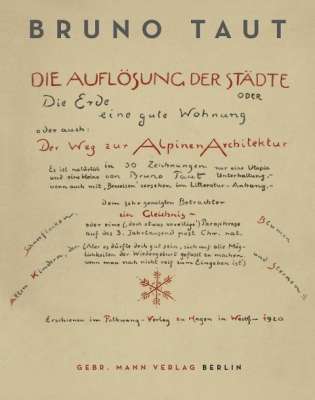 BRUNO TAUT
DIE AUFLÖSUNG DER STÄDTE
ODER
Die Erde
eine gute Wohnung
oder auch:
Der Weg zur Alpinen Architektur
Es ist natürlich in 30 Zeichnungen nur eine Utopia
und eine kleine von Bruno Taut Unterhaltung,-
wenn auch mit „Beweisen" versehen im Litteratur-Anhang,-
dem sehr geneigten Betrachter
ein Gleichnis –
oder eine (doch etwas voreilige?) Paraphrase
auf das 3. Jahrtausend post Chr. nat.
(Aber es dürfte doch gut sein, sich auf alle Mög-
lichkeiten der Wiedergeburt gefasst zu machen
wenn man noch nicht reif zum Eingehen ist)
Allen Kindern, den
Blumen
und Sternen!
Erschienen im Folkwang-Verlag zu Hagen in Westf. 1920
GEBR. MANN VERLAG BERLIN